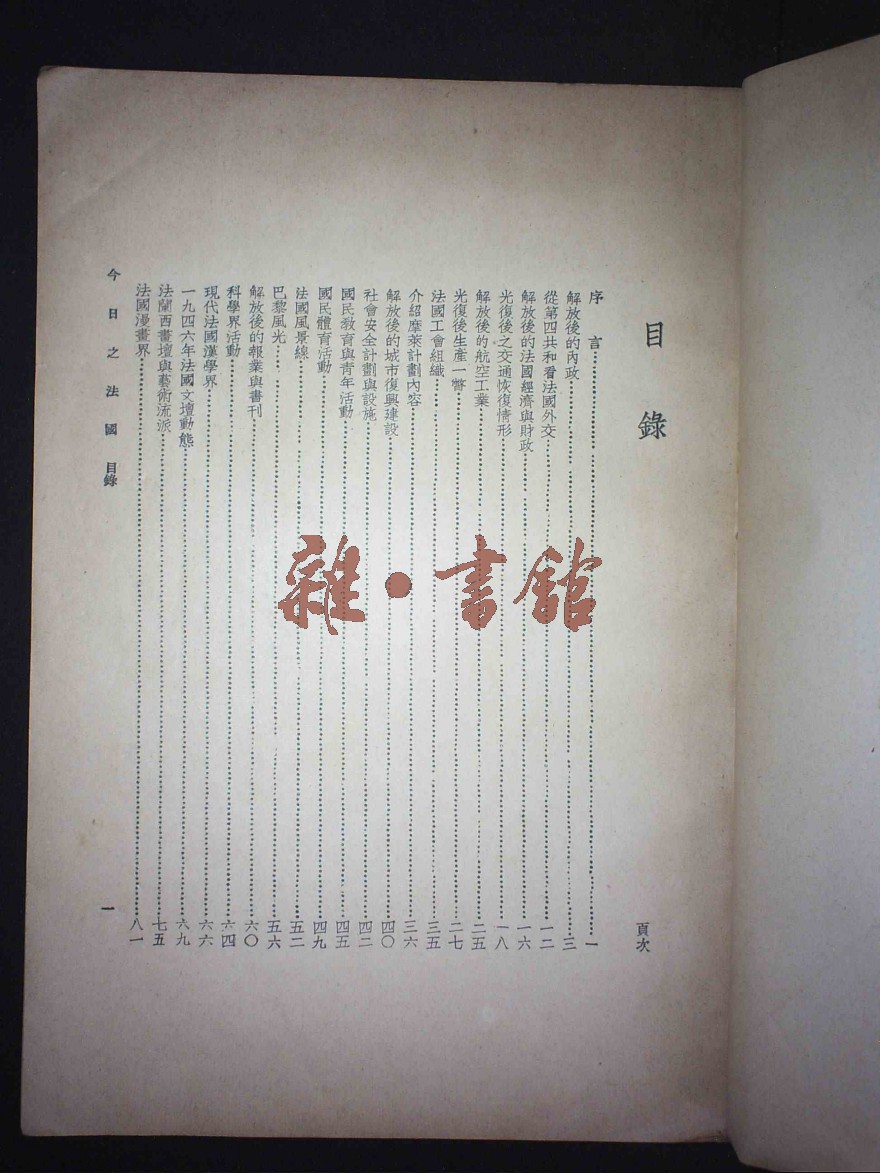 目錄
頁次
序言……一
解放後的內政……三
從第四共和看法國外交……一二
解放後的法國經濟與財政……一六
光復後之交通恢復情形……一八
解放後的航空工業……二五
光復後生產一瞥……二七
法國工會組織……三五
介紹摩萊計劃內容……三六
解放後的城市復興建設……四〇
社會安全計劃與設施……四二
國民教育與青年活動……四五
國民體育活動……四九
法國風景線……五二
巴黎風光……五六
解放後的報業與書刊……六〇
科學界活動……六四
現代法國漢學界……六六
一九四六年法國文壇動態……六九
法蘭西畫壇與藝術流派……七五
法國漫畫界……八一
今日之法國 目錄
一
雜·書館